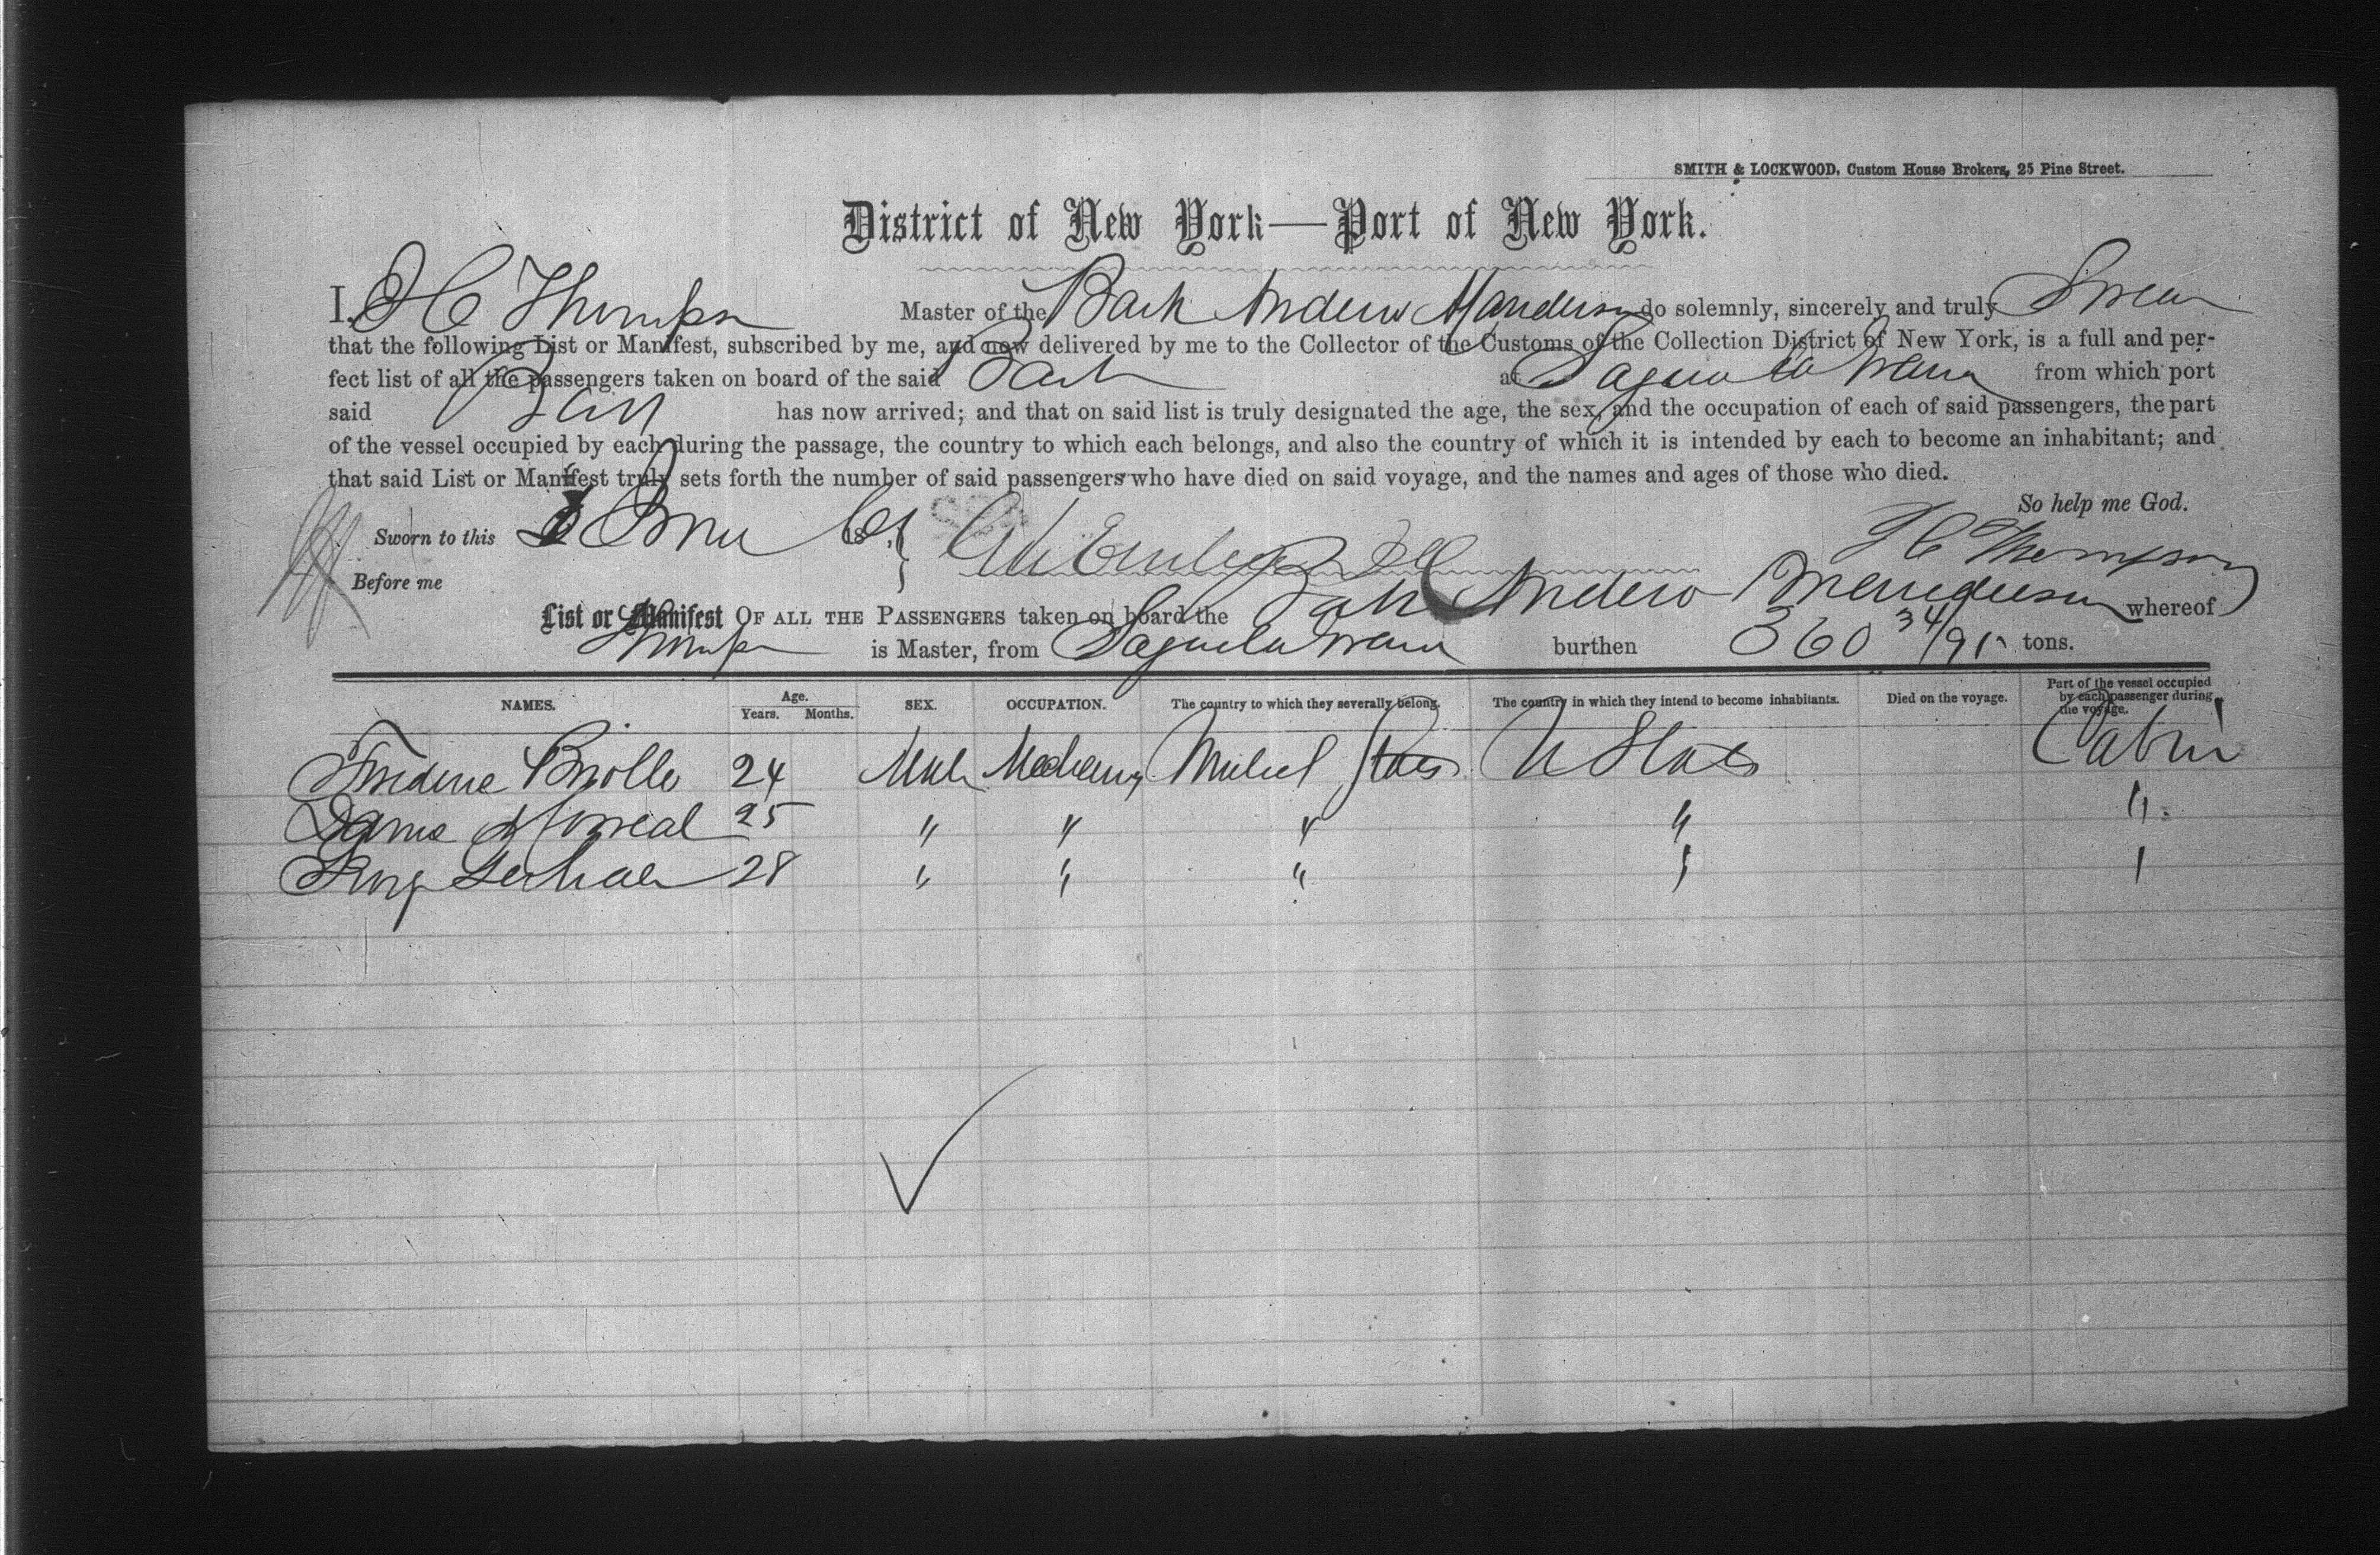 SMITH & LOCKWOOD, Custom House Brokers, 25 Pine Street.
District of New York—Port of New York.
I, H C Thompson Master of the Bark Andrew Manderson do solemnly, sincerely and truly Swear
that the following List or Manifest, subscribed by me, and now delivered by me to the Collector of the Customs of the Collection District of New York, is a full and per-
fect list of all the passengers taken on board of the said Bark at Sagua la from which port
said Bark has now arrived; and that on said list is truly designated the age, the sex, and the occupation of each of said passengers, the part
of the vessel occupied by each during the passage, the country to which each belongs, and also the country of which it is intended by each to become an inhabitant; and
that said List or Manifest truly sets forth the number of said passengers who have died on said voyage, and the names and ages of those who died.
So help me God.
Sworn to this 18
H C Thompson
Before me
List or Manifest OF ALL THE PASSENGERS taken on board the Bark Andrew Manderson whereof
Thompson is Master, from Sagua la burthen 360 34/95 tons.
NAMES. Age. Years. Months. SEX. OCCUPATION. The country to which they severally belong. The country in which they intend to become inhabitants. Died on the voyage. Part of the vessel occupied by each passenger during the voyage.
24 Male Mechanic United States U States Cabin
25 " " " " "
28 " " "